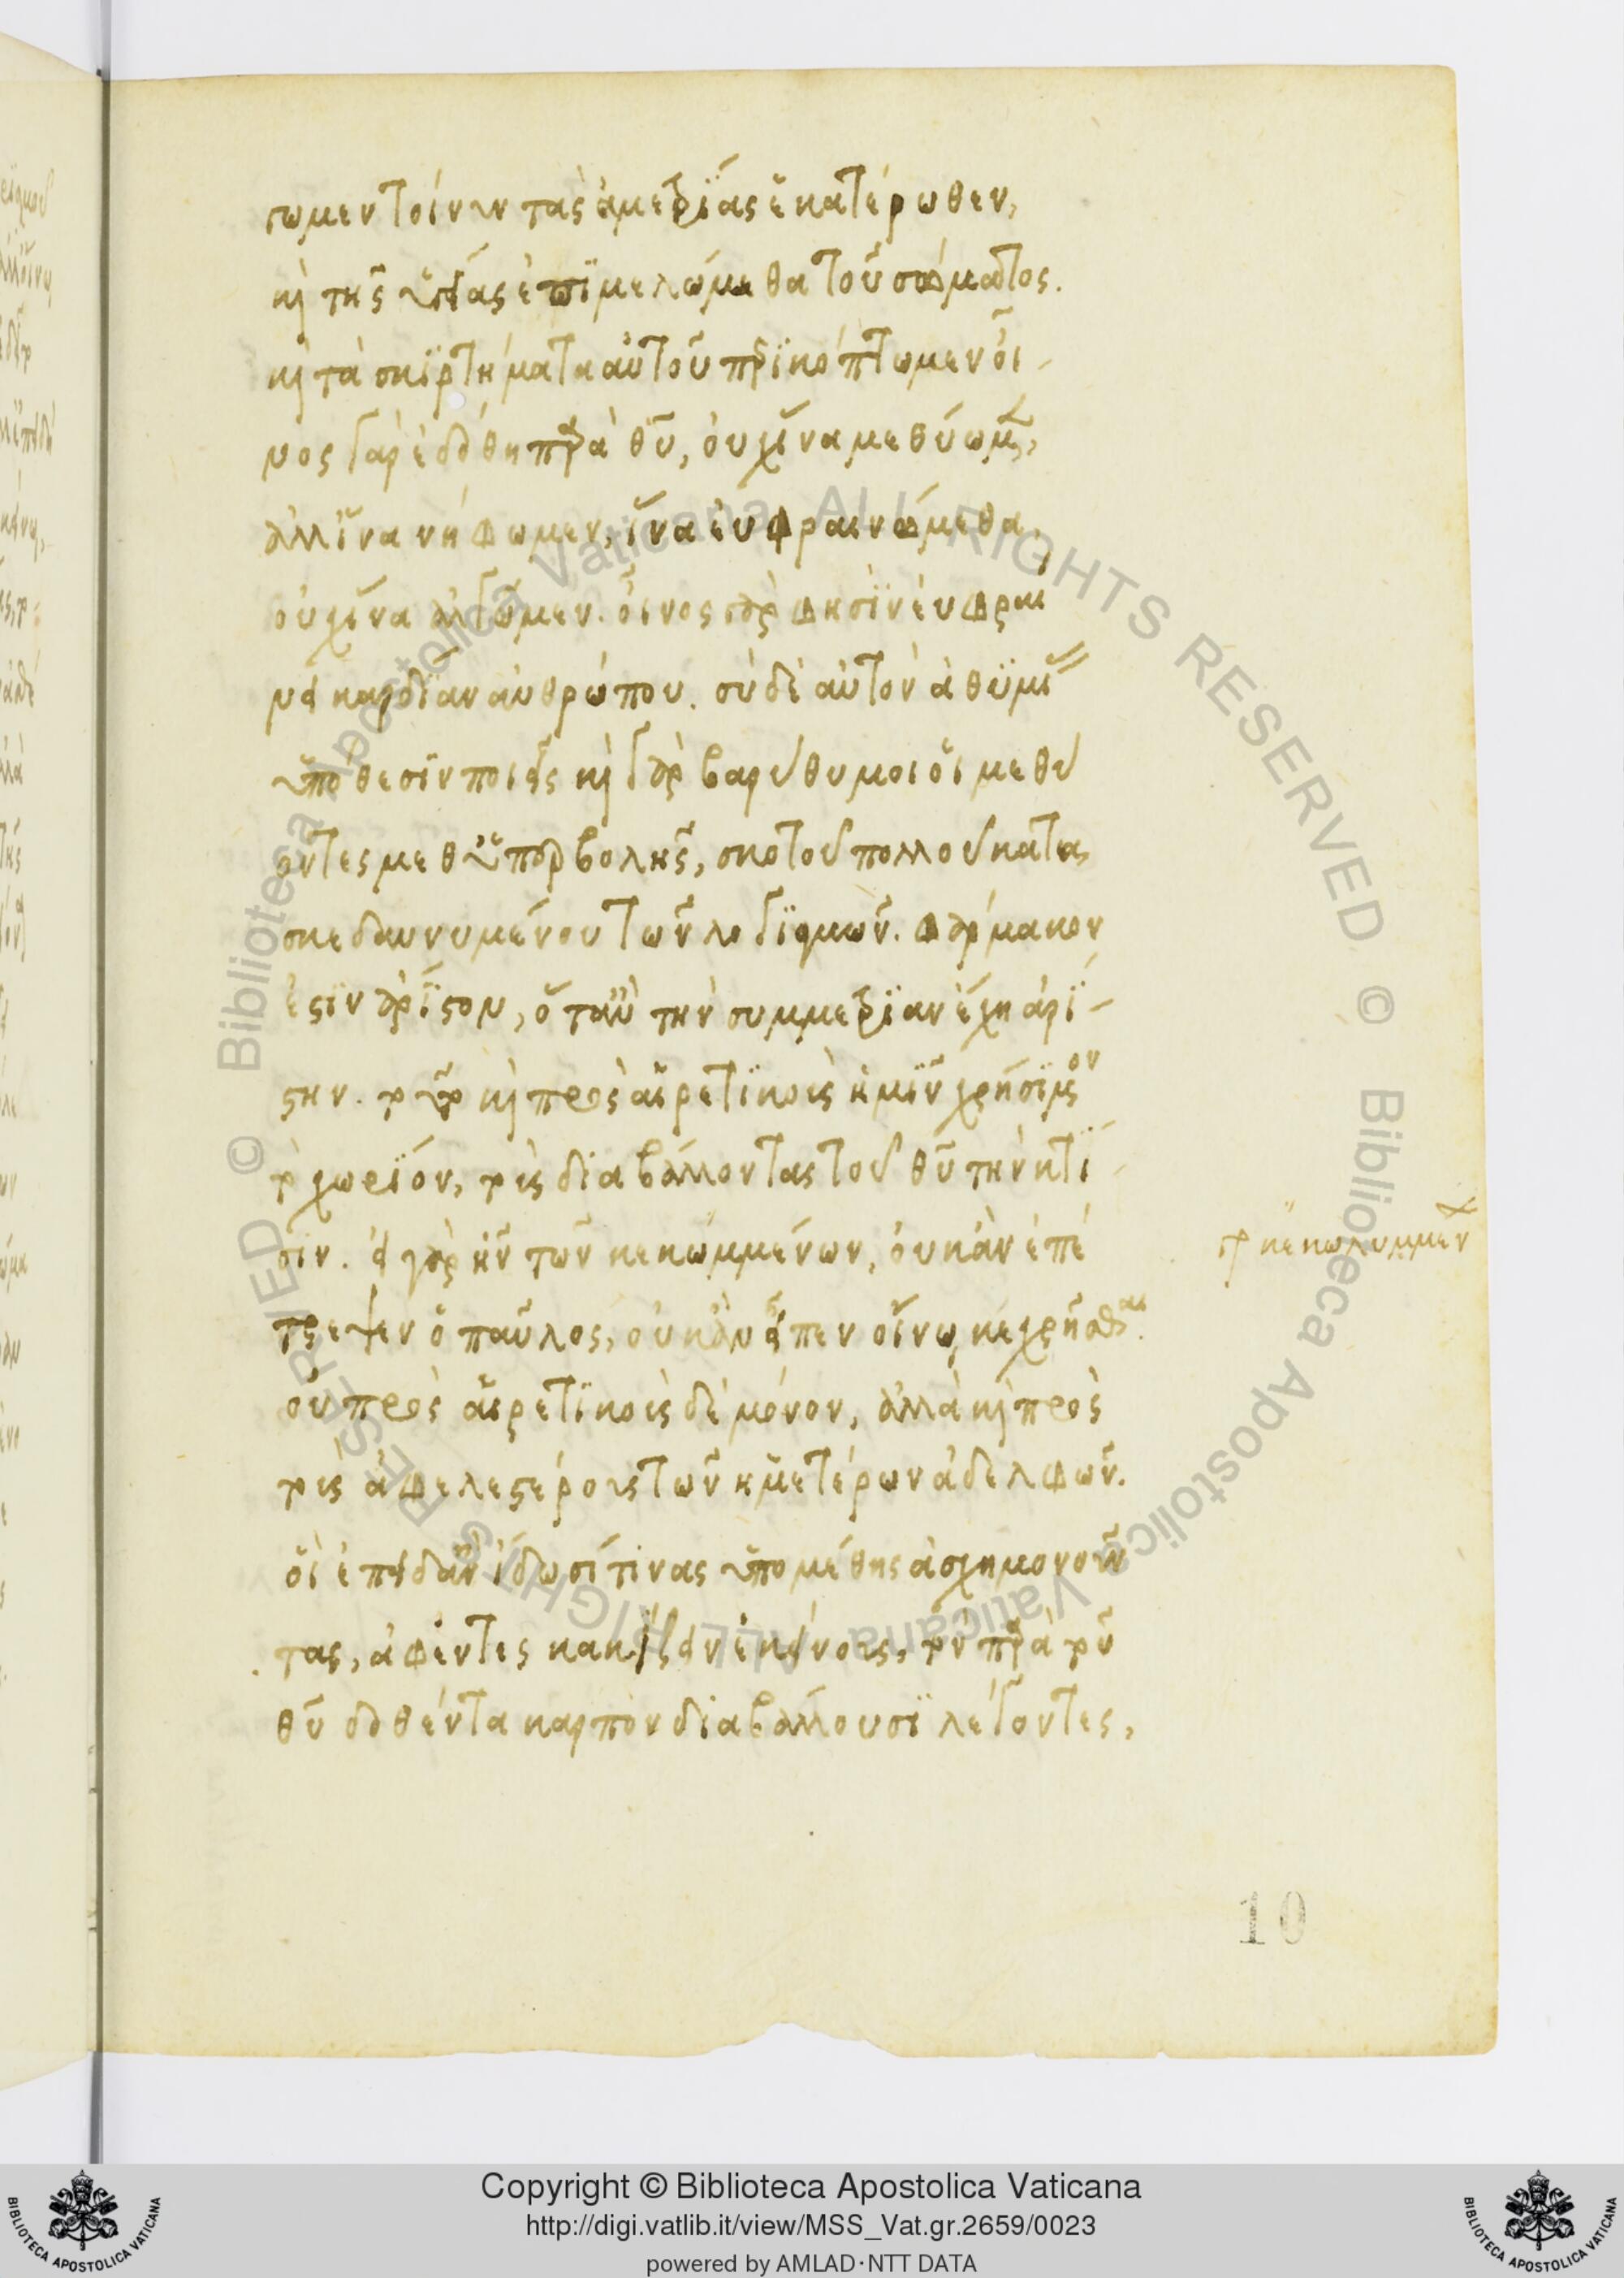 σωμεν τοίνυν τὰς ἀμετρίας ἑκατέρωθεν,
κ̀ τῆς ὑγείας ἐπιμελώμεθα τοῦ σώματος.
κ̀ τὰ σκιρτήματα αὐτοῦ περικόπτωμεν οἶ
νος γὰρ ἐδόθη παρὰ θῦ, οὐχ ἵνα μεθύωμεν,
ἀλλ ἵνα νήφωμεν, ἵνα εὐφραινώμεθα,
οὐχ ἵνα ἀλγῶμεν. οἶνος γὰρ φησὶν εὐφραί
νει καρδίαν ἀνθρώπου. σὺ δὲ αὐτὸν ἀθυμί
ὑπόθεσιν ποιεῖς κ̀ γὰρ βαρύθυμοι οἱ μεθύ
οντες μεθ ὑπερβολῆς, σκότου πολλοῦ κατα
σκεδαννυμένου τῶν λογισμῶν. φάρμακον
ἐστὶν ἄριστον, ὅταν τὴν συμμετρίαν ἔχη ἀρί
στην. τοῦτο κ̀ πρὸς αἱρετικοὺς ἡμῖν χρήσιμον
τὸ χωρίον, τοὺς διαβάλλοντας τοῦ θῦ τὴν κτί
σιν. εἰ γὰρ ἦν τῶν κεκωμμένων, οὐκ ἂν ἐπέ
τρεψεν ὁ παῦλος, οὐκ ἂν εἶπεν οἴνω κεχρῆσθαι.
οὐ πρὸς αἱρετικοὺς δὲ μόνον, ἀλλὰ κ̀ πρὸς
τοὺς ἀφελεστέρους τῶν ἡμετέρων ἀδελφῶν.
οἳ ἐπειδὰν ἴδωσί τινας ὑπὸ μέθης ἀσχημονοῦν
τας, ἀφέντες κακίζειν ἐκείνους, τὸν παρὰ τοῦ
θῦ δοθέντα καρπὸν διαβάλλουσι λέγοντες,
κεκωλυμμέν
10
Copyright © Biblioteca Apostolica Vaticana
http://digi.vatlib.it/view/MSS_Vat.gr.2659/0023
powered by AMLAD·NTT DATA
BIBLIOTECA APOSTOLICA VATICANA
BIBLIOTECA APOSTOLICA VATICANA
© Biblioteca Apostolica Vaticana ALL RIGHTS RESERVED © Biblioteca Apostolica Vaticana ALL RIGHTS RESERVED